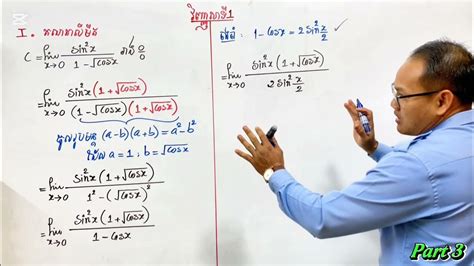 I. គណនាលីមីត
C = lim x→0 sin²x / 1 - √cosx រាង 0/0
= lim x→0 sin²x (1 + √cosx) / (1 - √cosx)(1 + √cosx)
(a-b)(a+b) = a² - b²
ដែល a = 1 ; b = √cosx
= lim x→0 sin²x (1 + √cosx) / 1² - (√cosx)²
= lim x→0 sin²x (1 + √cosx) / 1 - cosx
វិញ្ញាសាទី1
1 - cosx = 2 sin² x/2 ✓
= lim x→0 sin²x (1 + √cosx) / 2 sin² x/2
Part 3